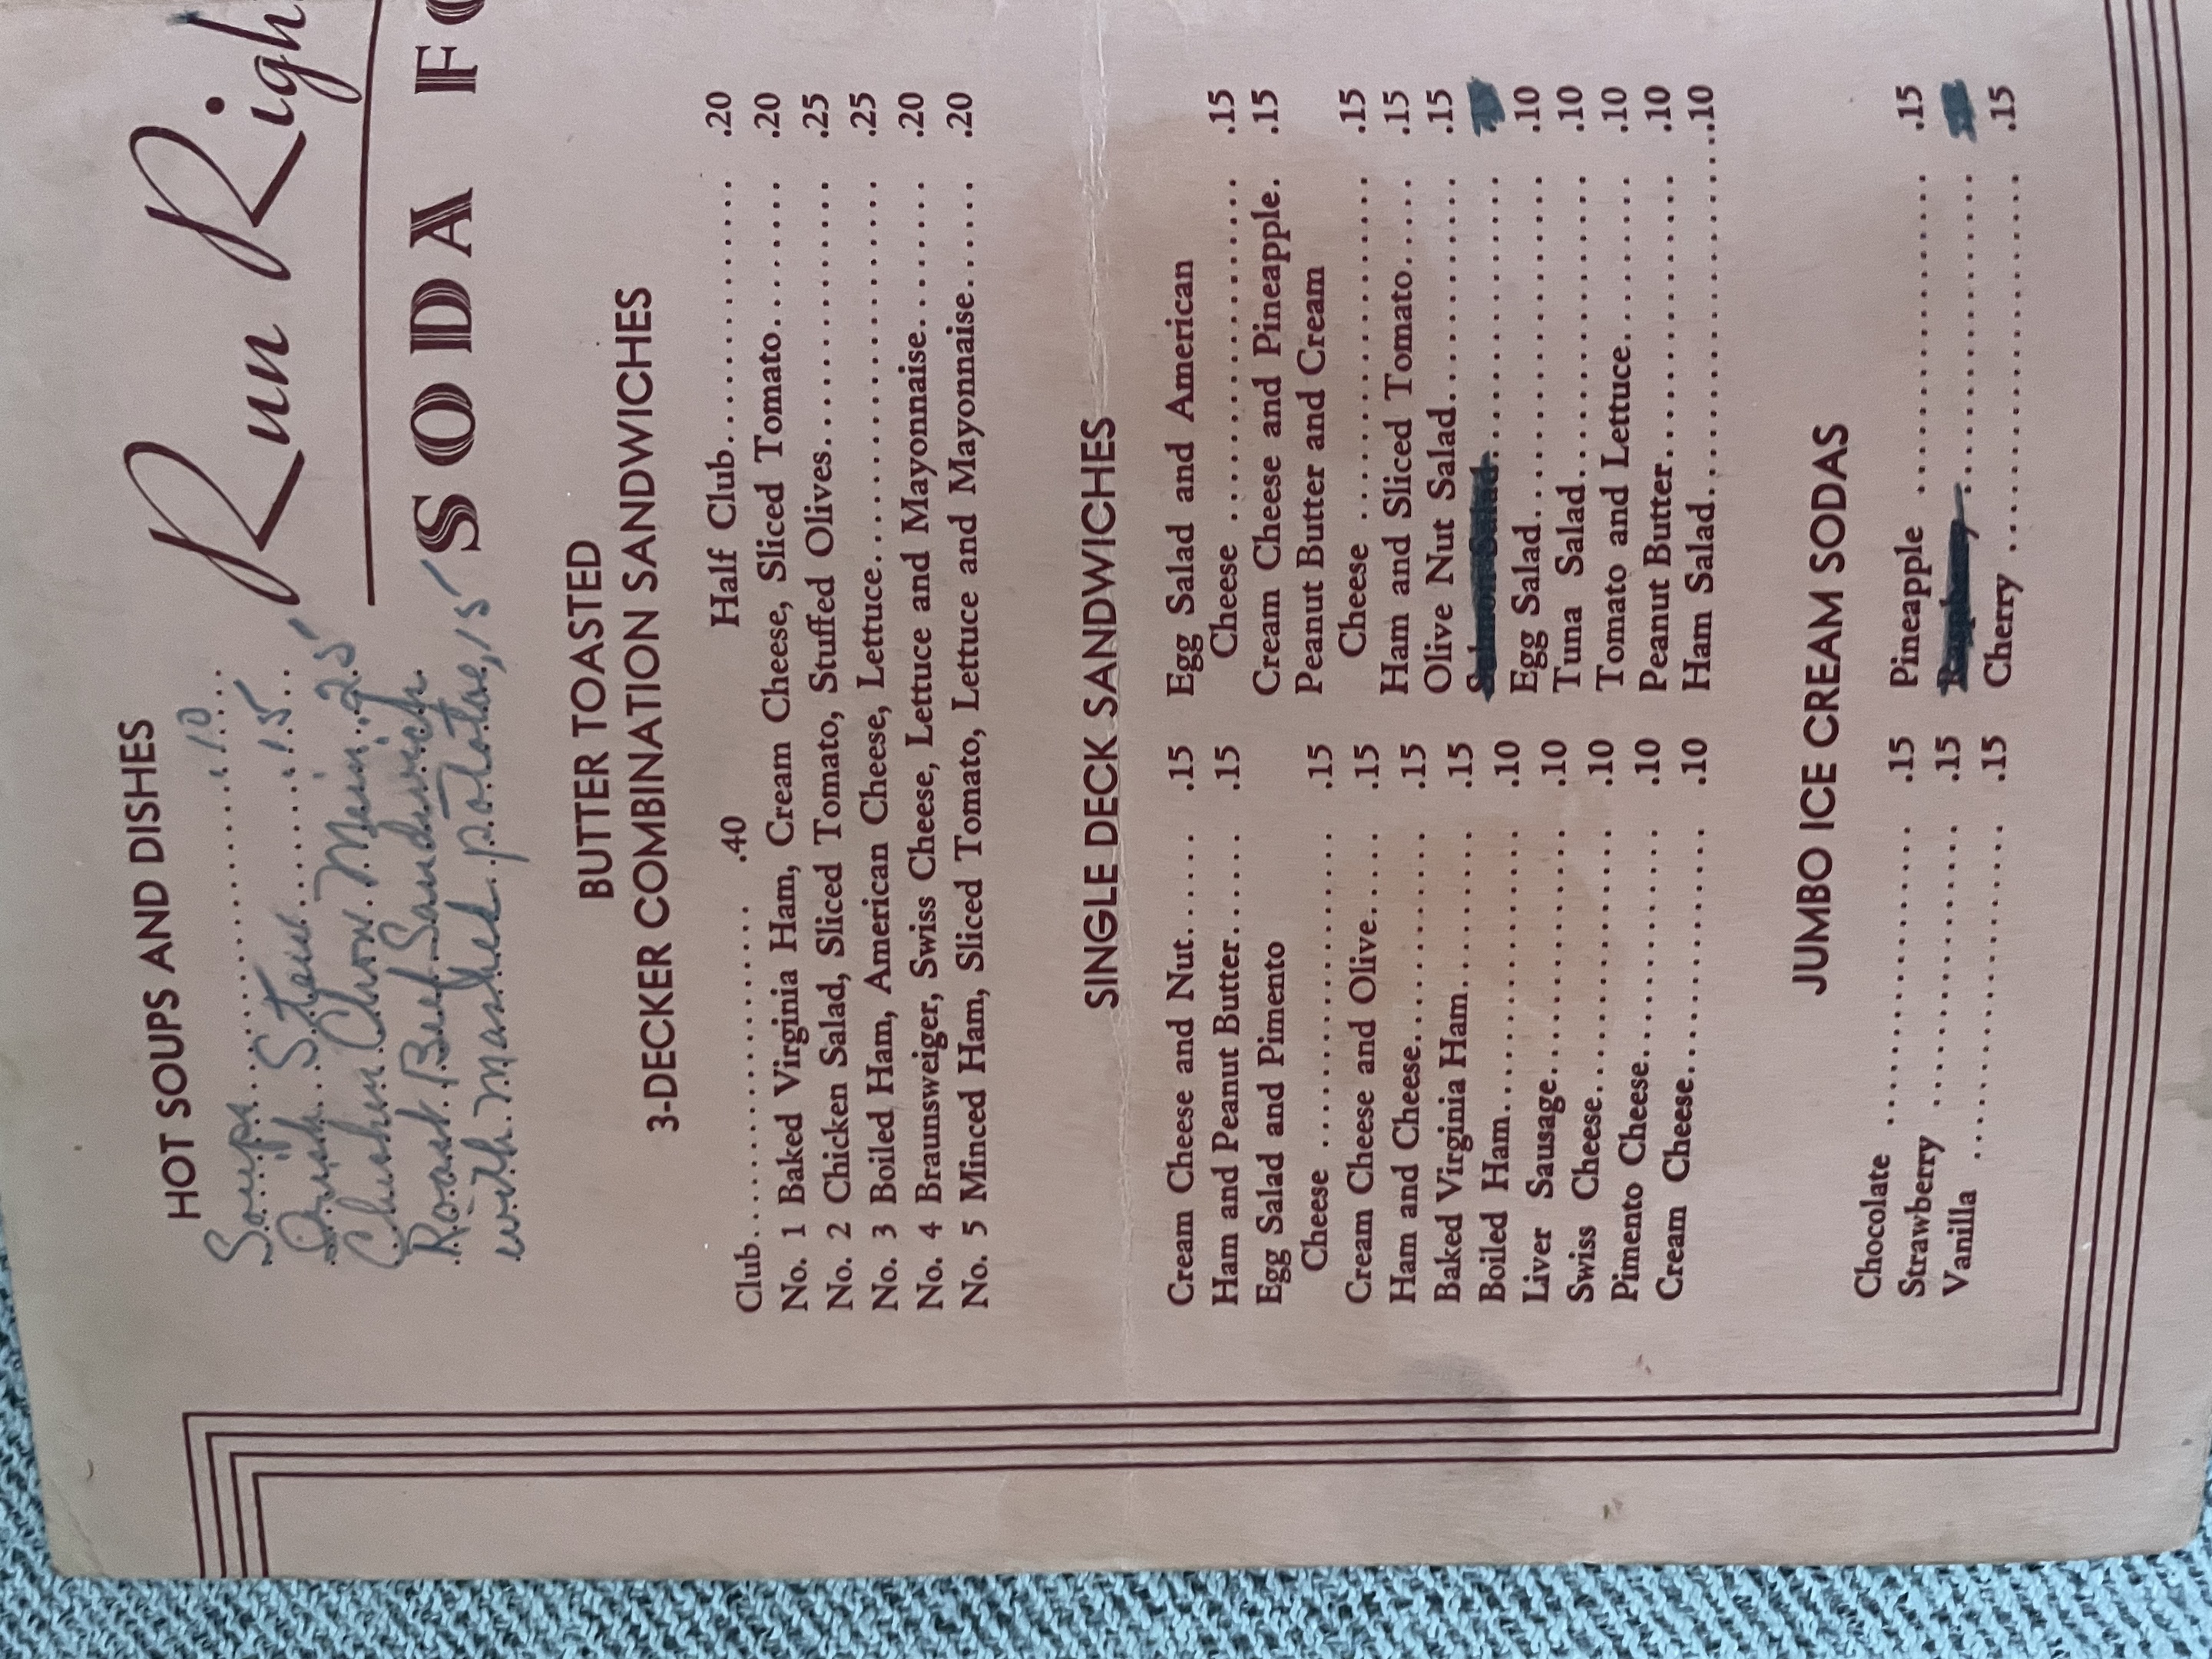 HOT SOUPS AND DISHES
Soups .10
Irish Stew .15
Chicken Chow Mein .25
Roast Beef Sandwich
with mashed potatoes, 15
Run Righ
SODA FO
BUTTER TOASTED
3-DECKER COMBINATION SANDWICHES
Club........................ .40 Half Club.................. .20
No. 1 Baked Virginia Ham, Cream Cheese, Sliced Tomato........ .20
No. 2 Chicken Salad, Sliced Tomato, Stuffed Olives................ .25
No. 3 Boiled Ham, American Cheese, Lettuce....................... .25
No. 4 Braunsweiger, Swiss Cheese, Lettuce and Mayonnaise........ .20
No. 5 Minced Ham, Sliced Tomato, Lettuce and Mayonnaise...... .20
SINGLE DECK SANDWICHES
Cream Cheese and Nut...... .15
Ham and Peanut Butter...... .15
Egg Salad and Pimento
Cheese .................... .15
Cream Cheese and Olive..... .15
Ham and Cheese............. .15
Baked Virginia Ham......... .15
Boiled Ham................. .10
Liver Sausage............... .10
Swiss Cheese............... .10
Pimento Cheese............. .10
Cream Cheese............... .10
Egg Salad and American
Cheese .................... .15
Cream Cheese and Pineapple. .15
Peanut Butter and Cream
Cheese .................... .15
Ham and Sliced Tomato..... .15
Olive Nut Salad............. .15
Egg Salad................... .10
Tuna Salad.................. .10
Tomato and Lettuce......... .10
Peanut Butter............... .10
Ham Salad...................10
JUMBO ICE CREAM SODAS
Chocolate .................. .15
Strawberry ................. .15
Vanilla .................... .15
Pineapple .................. .15
Cherry ..................... .15